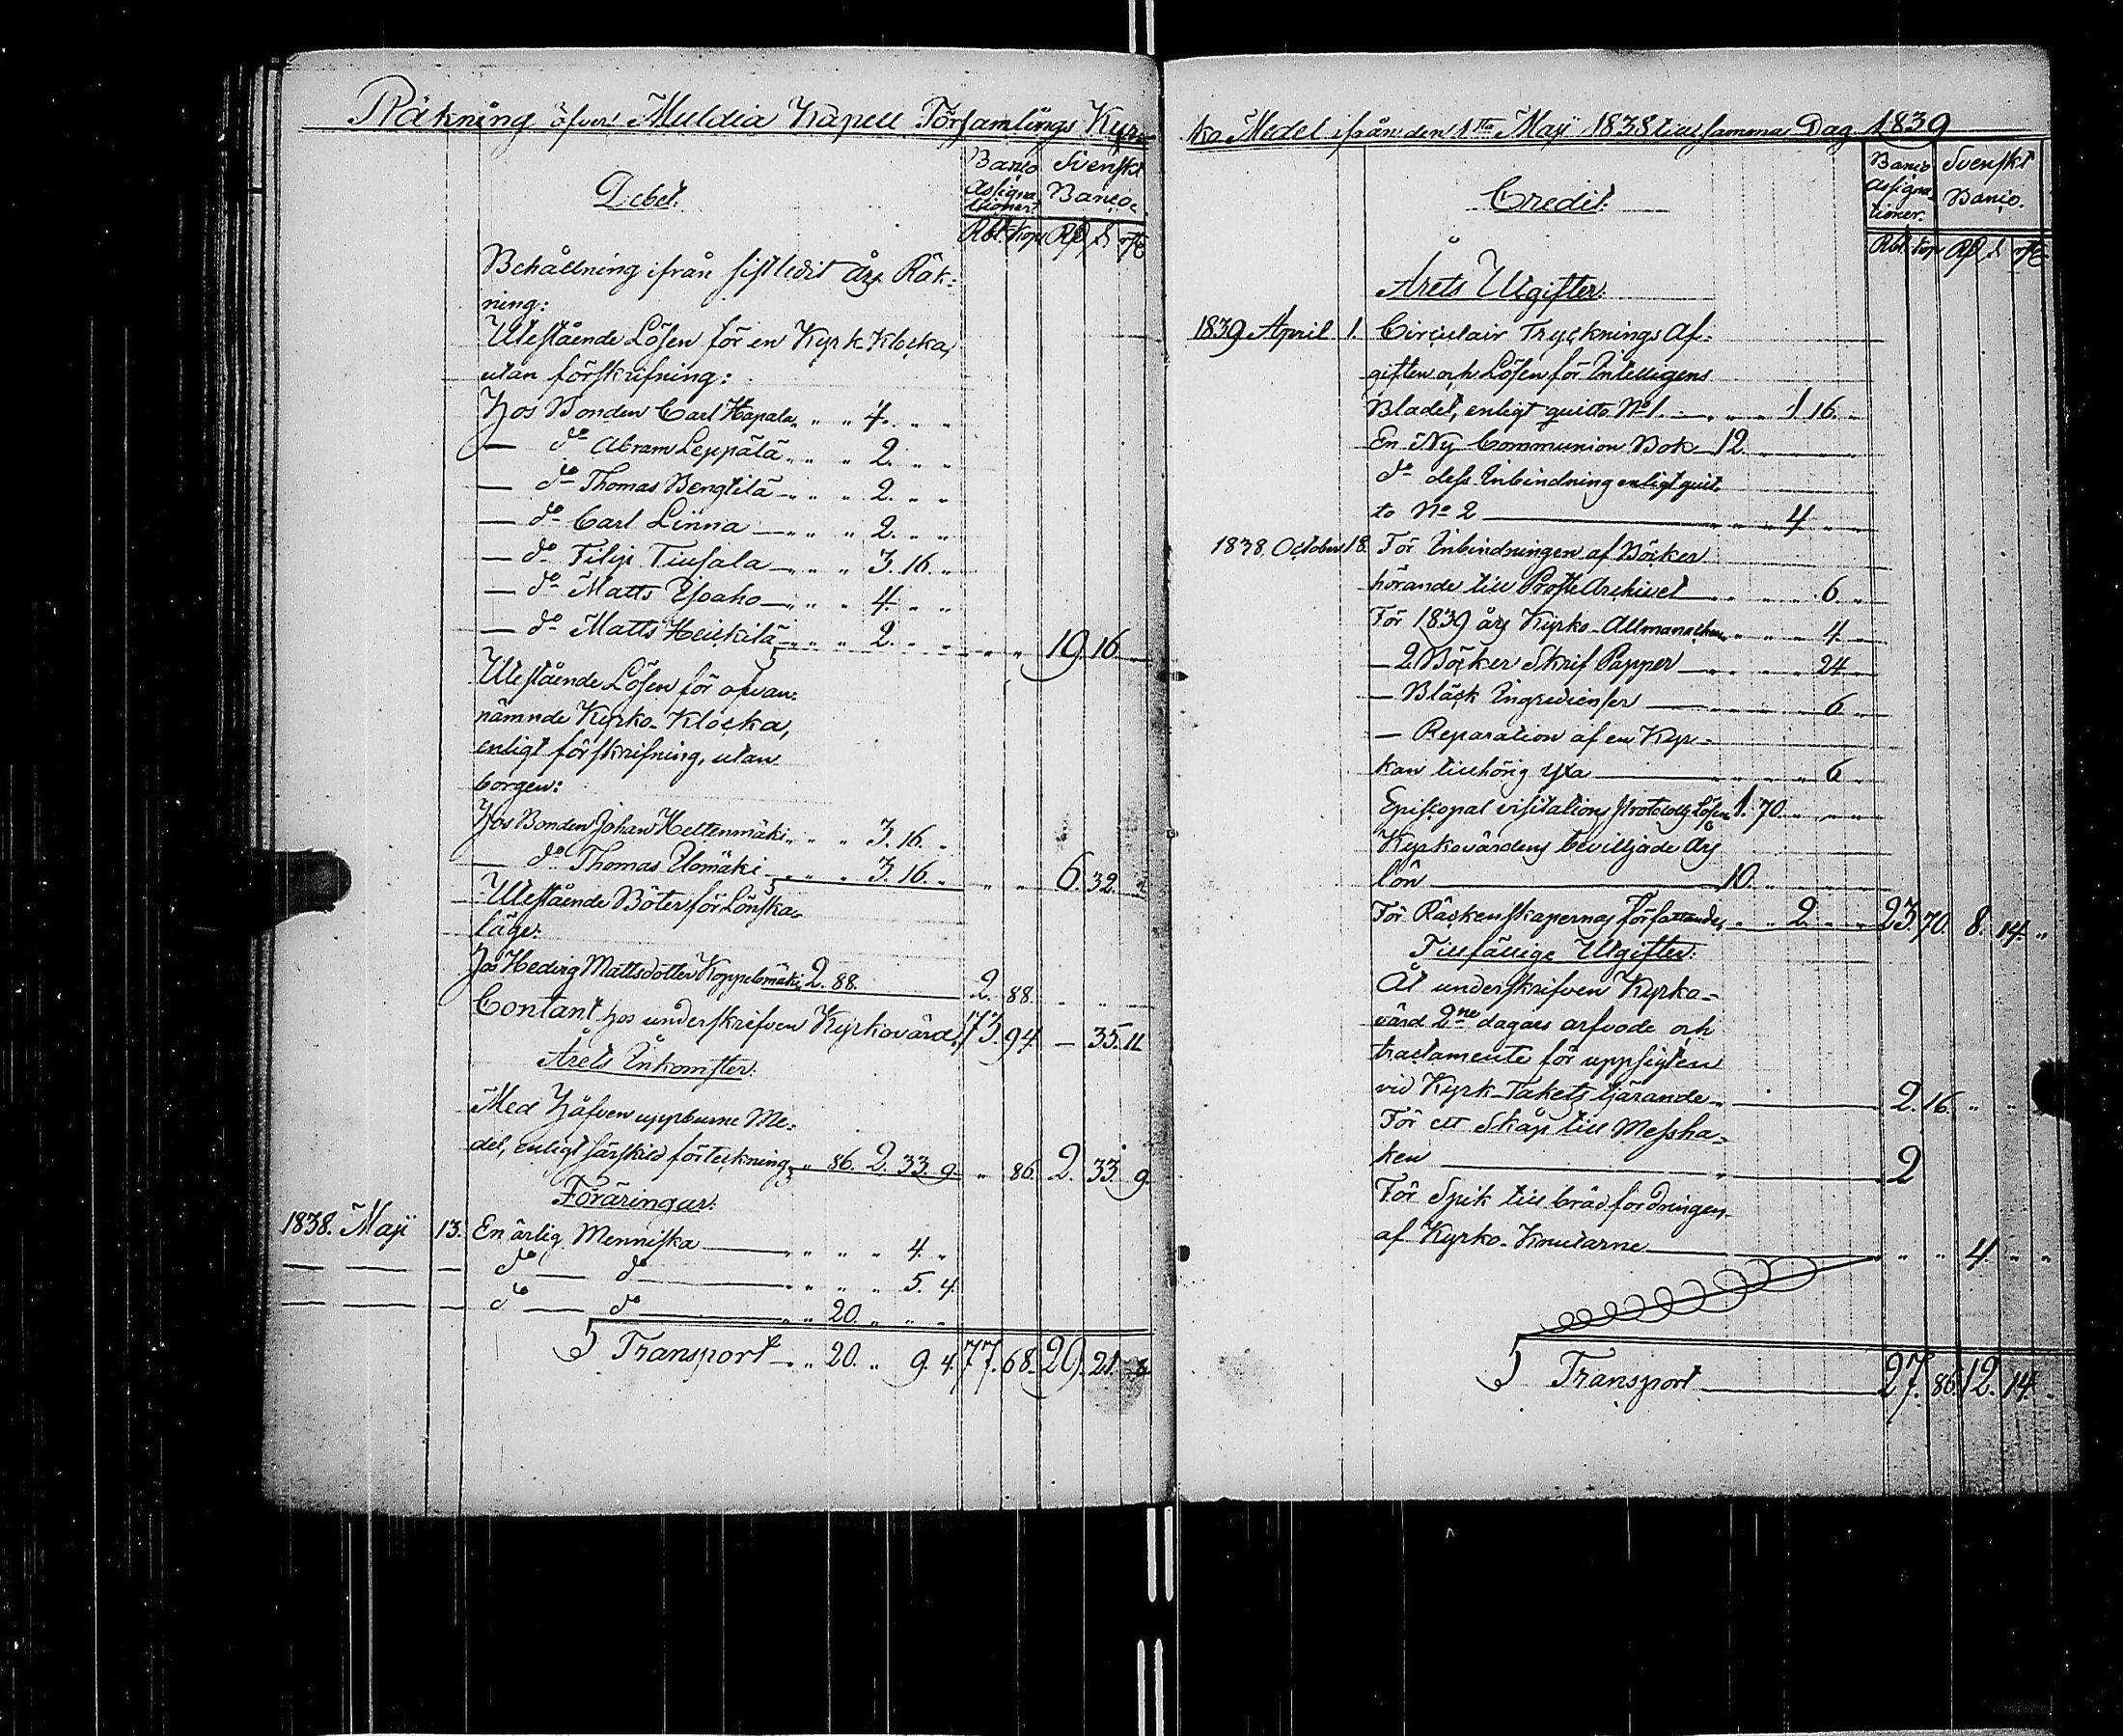 Räkning öfver Muldia Kapell Församlings Kyr-
Debet.
Banco Assignationer. Svenskt Banco.
Rbl. Kop. Rd. s. rst.
Behållning ifrån sistledit års Räk-
ning:
Utestående Lösen för en Kyrk-Klocka,
utan förskrifning:
Hos Bonden Carl Hapala „ „ „ 4. „ „
— do Abram Leppälä „ „ „ 2. „ „
— do Thomas Bengtilä „ „ „ 2. „ „
— do Carl Linna „ „ „ 2. „ „
— do Filip Tiusala „ „ „ 3. 16. „
— do Matts Ejoaho „ „ „ 4. „ „
— do Matts Heickilä „ „ „ 2. „ „ „ „ 19. 16. „
Utestående Lösen för ofvan-
nämnde Kyrko-Klocka,
enligt förskrifning, utan
borgen:
Hos Bonden Johan Hettenmäki „ „ „ 3. 16. „
— do Thomas Ulomäki „ „ „ 3. 16. „ „ „ 6. 32. „
Utestående Böter för Lönska-
läge:
Hos Hedvig Mattsdotter Koppelomäki 2. 88. 2. 88. „ „ „
Contant hos underskrifven Kyrkovärd 73. 94. — 35. 11.
Årets Inkomster:
Med Håfven uppburne Me-
del, enligt särskild förteckning „ 86. 2. 33. 9. „ 86. 2. 33. 9.
Föräringar:
1838. Maji 13. En ärlig Menniska „ „ „ 4. „
— — — do — do „ „ „ 5. 4.
— — — do — do „ „ 20. „ „ „
Transport „ „ 20. „ 9. 4. 77. 68. 29. 21. 8
ko Medel ifrån den 1sta Maji 1838 till samma Dag 1839
Credit.
Banco Assignationer. Svenskt Banco.
Rbl. kop. Rd. s. rst.
Årets Utgifter:
1839 April 1. Circulair Trycknings Af-
giften och Lösen för Intelligens
Bladet, enligt quitto No 1. „ „ „ 1. 16. „
En Ny Communion Bok 12. „ „ „ „
do dess Inbindning enligt quit-
to No 2 „ „ „ 4. „ „
1838. October 18. För Inbindningen af Böcker
hörande till Proste Archivet „ „ „ „ 6. „
För 1839 års Kyrko-Allmanachan „ „ „ „ 4. „
— 2 Böcker Skrif Papper „ „ „ „ 24. „
— Bläck Ingredienser „ „ „ „ 6. „
— Reparation af en Kyr-
kan tillhörig yxa „ „ „ „ 6. „
Episcopal visitations Protocolls Lösen 1. 70. „ „ „
Kyrkovärdens bevilljade Års
lön 10. „ „ „ „
För Räckenskapernas författande „ „ 2. „ „ 23. 70. 8. 14. „
Tillfällige Utgifter:
Åt underskrifven Kyrko-
värd 2ne dagars arfvode och
tractamente för uppsigten
vid Kyrk-Takets tjärande 2. 16. „ „ „
För ett Skåp till Messha-
ken 2
För Spik till brädfordringen
af Kyrko-Knutarne „ „ 4. „ „
Transport 27. 86. 12. 14. „